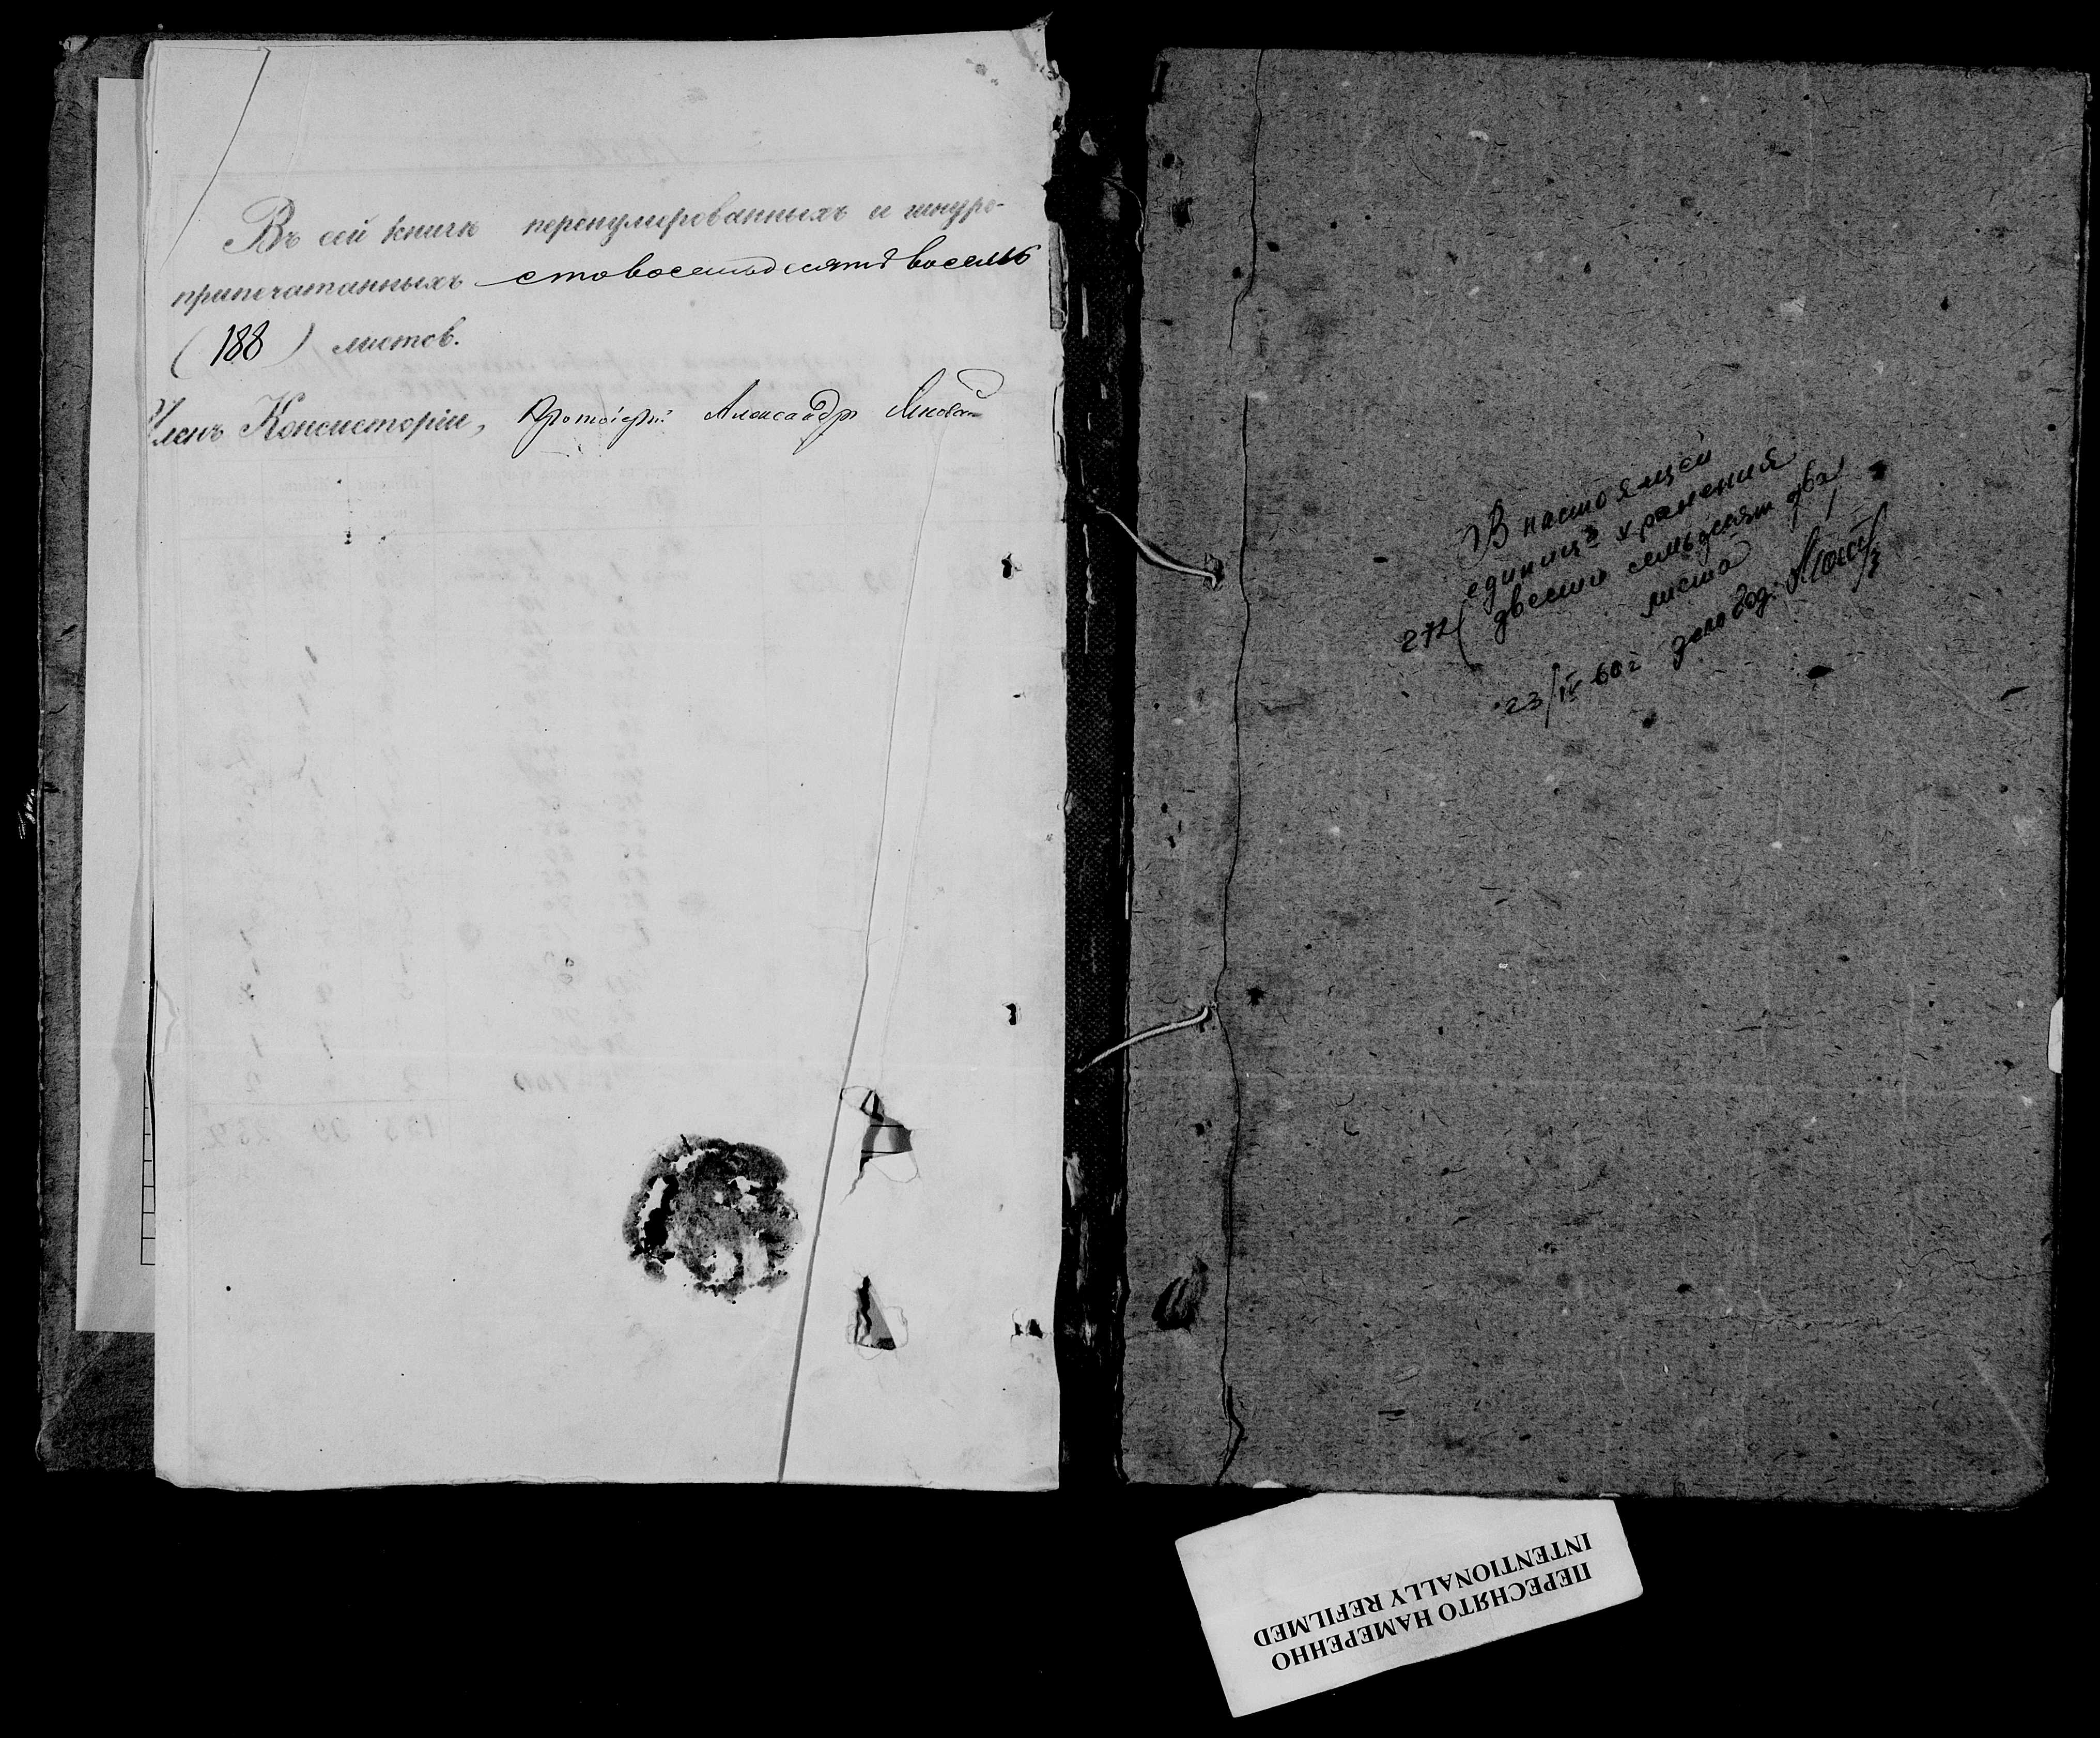 Въ сей книгѣ перенумерованныхъ и шнуро-
припечатанныхъ стовосемьдесятъ восемь
(188) листов.
Членъ Консисторіи, Протоіерей Александръ
В настоящей
единице хранения
272 ( двести семьдесят два )
листа
23/IV 60 г
ПЕРЕСНЯТО НАМЕРЕННО
INTENTIONALLY REFILMED